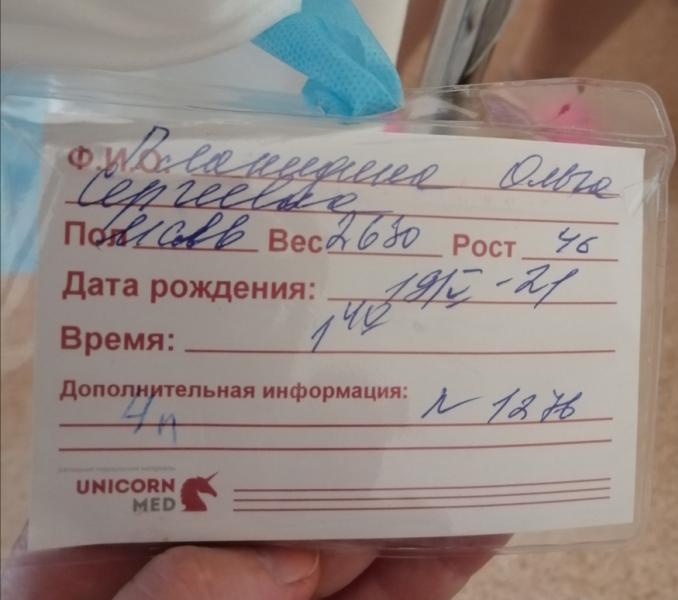 Ф.И.О. Ольга
Сергеевна
Пол Вес 2630 Рост 46
Дата рождения: 19/V-21
Время: 1 40
Дополнительная информация: N 1276
4п
UNICORN
MED